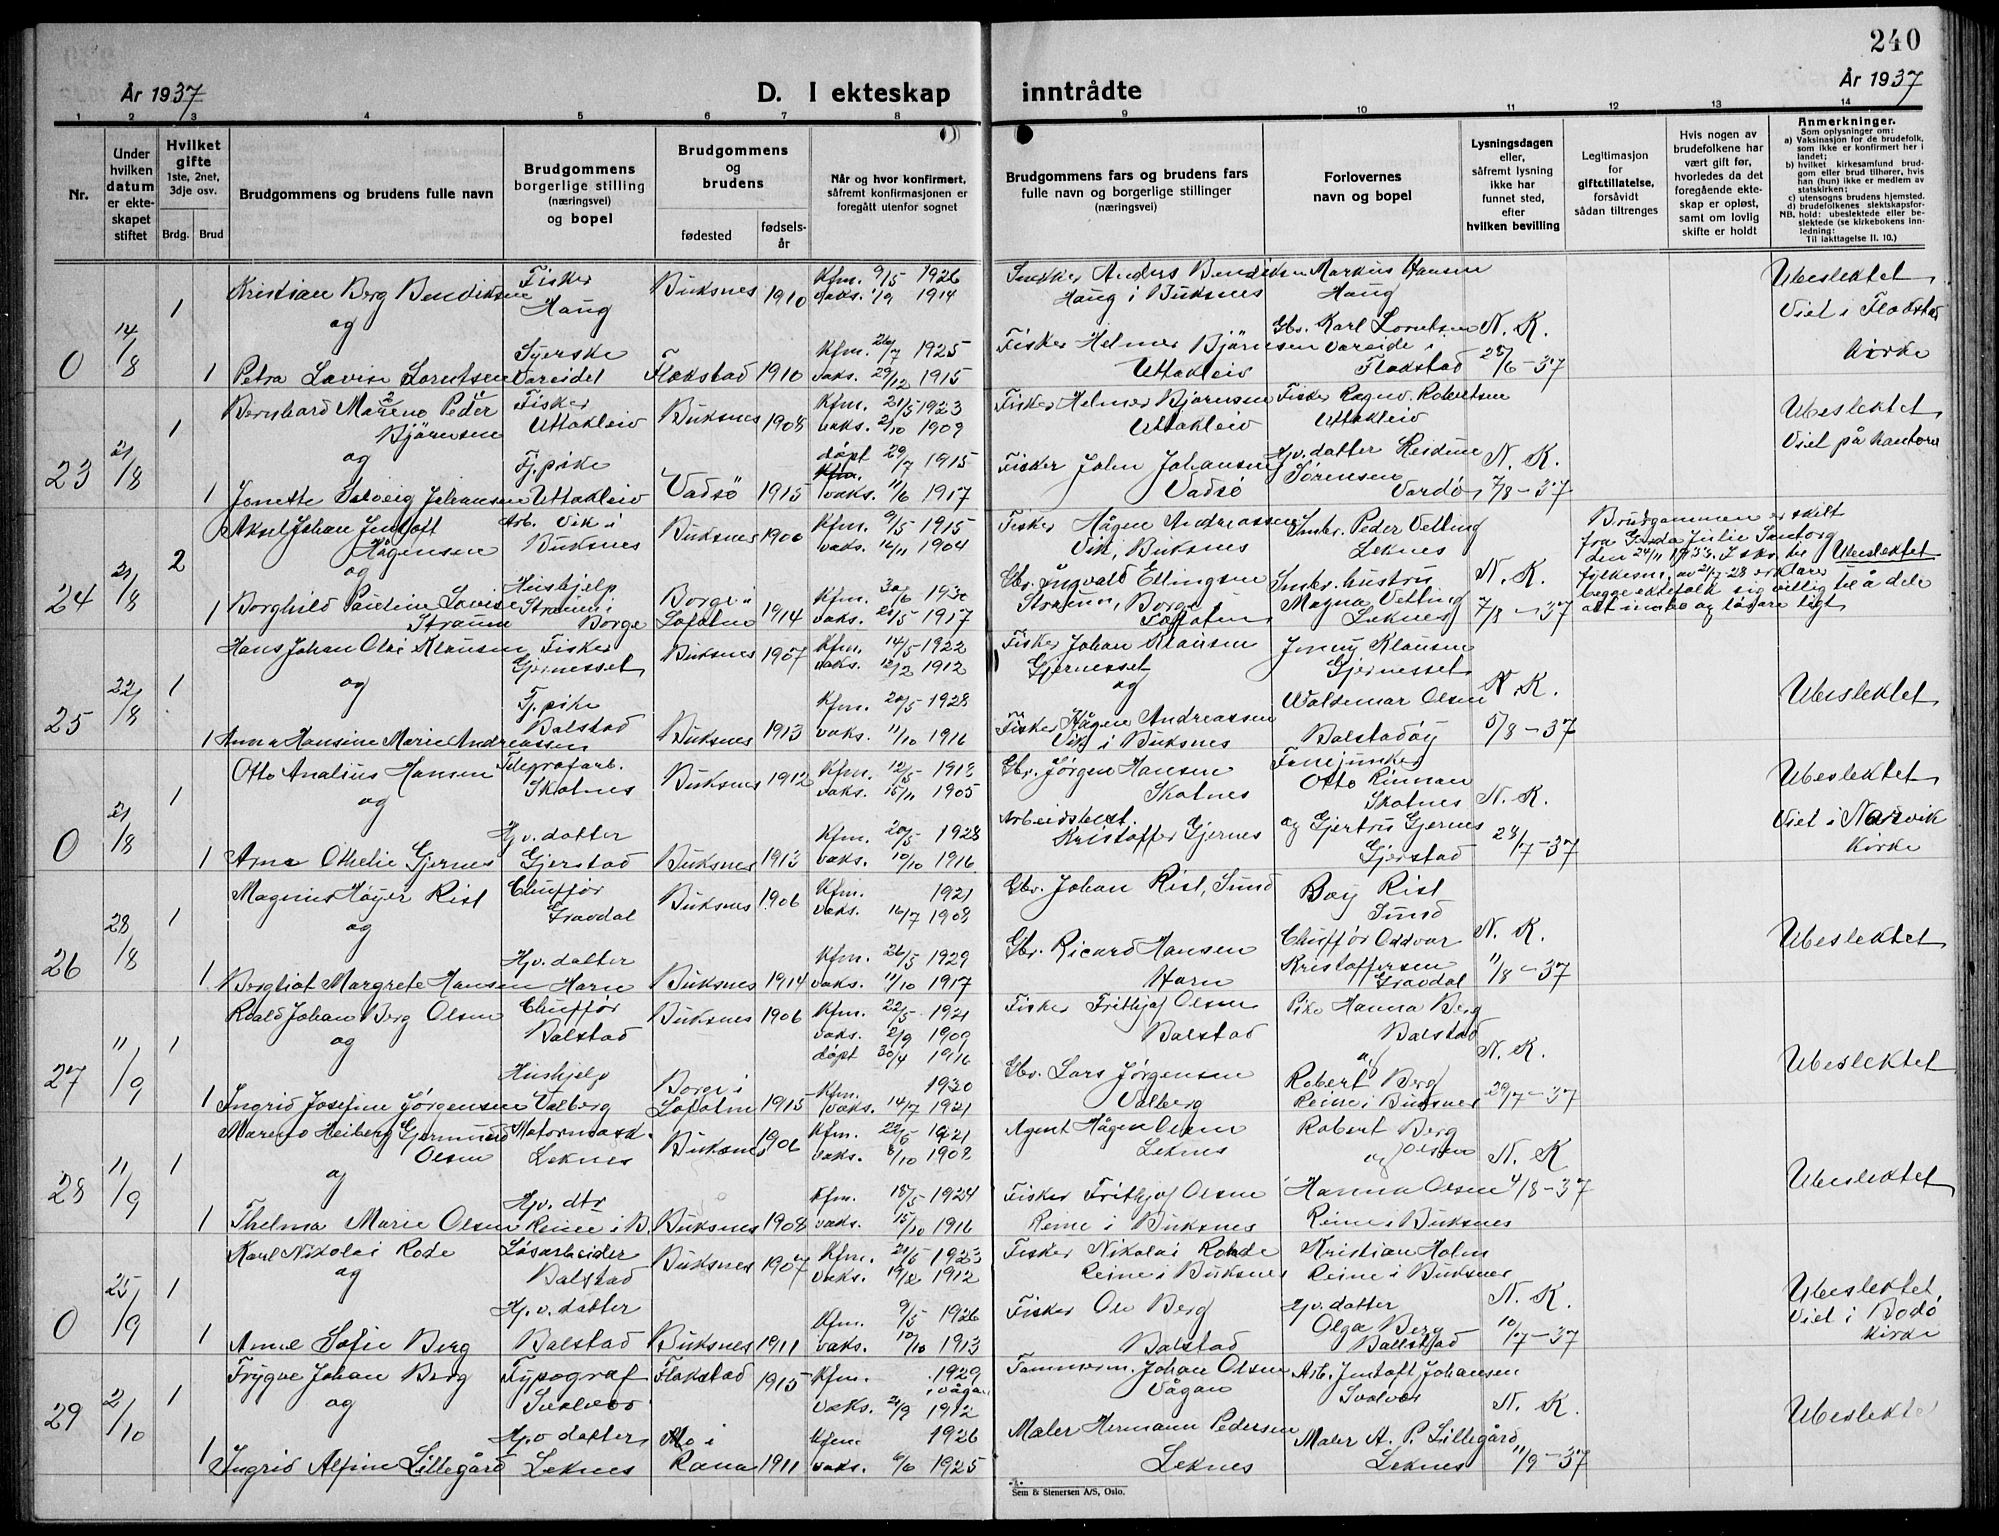 240
År 1937
D. I ekteskap inntrådte
År 1937
1 2 3 4 5 6 7 8 9 10 11 12 13 14
Nr.
Under hvilken datum er ekteskapet stiftet
Hvilket gifte 1ste, 2net, 3dje osv.
Brdg. Brud
Brudgommens og brudens fulle navn
Brudgommens borgerlige stilling (næringsvei) og bopel
Brudgommens og brudens
fødested
fødselsår
Når og hvor konfirmert, såfremt konfirmasjonen er foregått utenfor sognet
Brudgommens fars og brudens fars fulle navn og borgerlige stillinger (næringsvei)
Forlovernes navn og bopel
Lysningsdagen eller, såfremt lysning ikke har funnet sted, efter hvilken bevilling
Legitimasjon for giftetillatelse, forsåvidt sådan tiltrenges
Hvis nogen av brudefolkene har vært gift før, hvorledes da det foregående ekteskap er opløst, samt om lovlig skifte er holdt
Anmerkninger.
Som oplysninger om:
a) Vaksinasjon for de brudefolk, som ikke er konfirmert her i landet;
b) hvilket kirkesamfund brudgom eller brud tilhører, hvis han (hun) ikke er medlem av statskirken;
c) utensogns brudens hjemsted.
d) brudefolkenes slektskapsforhold: ubeslektede eller beslektede (se kirkebokens innledning:
NB.
Til iakttagelse II. 10.)
Kristian Berg Bendiksen Fisker Haug Buksnes 1910 Kfm. 9/5 1926 vaks. 1/9 1914
Snekker Anders Bendiksen Haug i Buksnes Markus Hansen Haug
0 14/8 1 og
Ubeslektet Viet i Flakstad kirke
1 Petra Lovise Lorntsen Syerske Vareidet Flakstad 1910 Kfm. 26/7 1925 vaks. 29/12 1915
Fisker Helmer Bjørnsen Uttakleiv Gbr. Karl Lorntsen Vareide i Flakstad N. K. 25/6-37
Bernhard Mareno Peder Bjørensen Fisker Uttakleiv Buksnes 1908 Kfm. 21/5 1923 vaks. 2/10 1909
Fisker Helmer Bjørensen Uttakleiv Fisker Ragnv. Robertsen Uttakleiv
23 21/8 1 og
Ubeslektet Viet på kontoret
1 Jonette Solveig Johansen Tj. pike Uttakleiv Vadsö 1915 döpt 29/7 1915 vaks. 11/6 1917
Fisker John Johansen Vadsö Hjv. datter Reidun Sørensen Vardö N. K. 7/8-37
Aksel Johan Jentoft Hågensen Arb. Vik i Buksnes Buksnes 1900 Kfm. 9/5 1915 vaks. 16/11 1904
Fisker Hågen Andreassen Vik, Buksnes Snbr. Peder Vetting Leknes
Brudgommen er skilt fra Gerda Julie Samtorg den 24/11 1933.
24 21/8 2 og
begge ektefolk sig villig til å dele
Ubeslektet
1 Borghild Pauline Lovise Straum Hushjelp Straum i Borge Borge i Lofoten 1914 Kfm. 30/6 1930 vaks. 21/5 1917
Gbr. Ingvald Ellingsen Straum, Borge i Lofoten Snbr. hustru Magna Vetting Leknes N. K. 7/8-37
Hans Johan Olai Klausen Fisker Gjernesset Buksnes 1907 Kfm. 14/5 1922 vaks. 12/2 1912
Fisker Johan Klausen Gjernesset og Jenny Klausen Gjernesset
25 22/8 1 og
Ubeslektet
1 Anna Hansine Marie Andreassen Tj. pike Balstad Buksnes 1913 Kfm. 20/5 1928 vaks. 11/10 1916
Fisker Hågen Andreassen Vik i Buksnes Waldemar Olsen Balstadöy N. K. 5/8-37
Otto Analius Hansen Telegrafarb. Skotnes Buksnes 1912 Kfm. 12/5 1918 vaks. 15/11 1905
Gbr. Jørgen Hansen Skotnes Fenejunker Otto Rinnan Skotnes
0 21/8 1 og
Ubeslektet Viet i Narvik kirke
1 Arna Othelie Gjernes Hjv. datter Gjerstad Buksnes 1913 Kfm. 20/5 1928 vaks. 10/10 1916
Arbeidsbest. Kristoffer Gjernes og Gjertrus Gjernes Gjerstad N. K. 23/7-37
Magnus Høyer Rist Chuffør Gravdal Buksnes 1906 Kfm. 1921 vaks. 16/7 1908
Gbr. Johan Rist, Sund Boy Rist Sund
26 28/8 1 og
Ubeslektet
1 Bergliot Margrete Hansen Hjv. datter Horn Buksnes 1914 Kfm. 26/5 1929 vaks. 11/10 1917
Gbr. Ricard Hansen Horn Chufför Oddvar Kristoffersen Gravdal N. K. 11/8-37
Roald Johan Berg Olsen Chufför Balstad Buksnes 1906 Kfm. 22/5 1921 vaks. 2/9 1909
Fisker Frithjof Olsen Balstad Pike Hanna Berg Balstad
27 11/9 1 og
Ubeslektet
1 Ingrid Josefine Jørgensen Hushjelp Valberg Borge i Lofoten 1915 döpt 30/4 1916 Kfm. 1930 vaks. 14/7 1921
Gbr. Lars Jørgensen Valberg og Robert Berg Reine i Buksnes N. K. 29/7-37
Mareno Heiberg Gjermund Olsen Motormask. Leknes Buksnes 1906 Kfm. 22/5 1921 vaks. 8/10 1908
Agent Hågen Olsen Leknes Robert Berg Olsen og
28 11/9 1 og
Ubeslektet
1 Thelma Marie Olsen Hjv. dtr Reine i B. Buksnes 1908 Kfm. 18/5 1924 vaks. 15/10 1916
Fisker Frithjof Olsen Reine i Buksnes Hanna Olsen Reine i Buksnes N. K. 4/8-37
Karl Nikolai Rode Løsarbeider Balstad Buksnes 1907 Kfm. 21/5 1923 vaks. 19/2 1912
Fisker Nikolai Rohde Reine i Buksnes Kristian Holm Reine i Buksnes
0 25/9 1 og
Ubeslektet. Viet i Bodø kirke
1 Anne Sofie Berg Hjv. datter Balstad Buksnes 1911 Kfm. 9/5 1926 vaks. 10/10 1913
Fisker Ole Berg Balstad Hjv. datter Olga Berg Ballstad N. K. 10/7-37
Trygve Johan Berg Typograf Svolvær Flakstad 1915 Kfm. 1929 i Vågan vaks. 21/9 1912
Tømmerm. Johan Olsen Vågan Arb. Jentoft Johansen Svolvær
29 2/10 1 og
Ubeslektet
1 Ingrid Alfine Lillegård Hjv. datter Leknes Mo i Rana 1911 Kfm. 1926 vaks. 6/6 1925
Maler Hermann Pedersen Leknes Maler A. P. Lillegård Leknes N. K. 11/9-37
Sem & Stenersen A/S, Oslo.